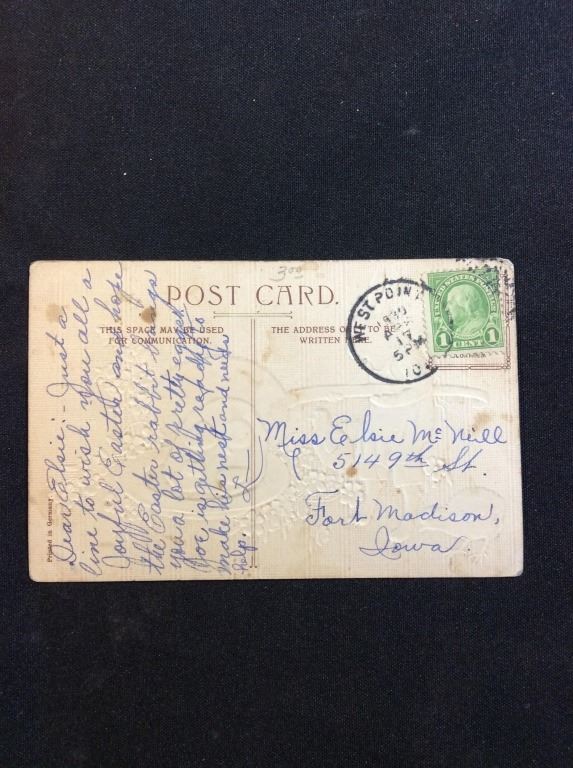 3 00
POST CARD.
THIS SPACE MAY BE USED
FOR COMMUNICATION.
THE ADDRESS ONLY TO BE
WRITTEN HERE.
WEST POINT
APR
17
5 PM
UNITED STATES POSTAGE
1 CENT 1
Dear Elsie:- Just a
line to wish you all a
Joyful Easter and hope
the Easter rabbit brings
you a lot of pretty eggs.
Joe is getting ready to
make his nest and needs
help.
Miss Elsie McNeill
514 9th St.
Fort Madison,
Iowa.
Printed in Germany